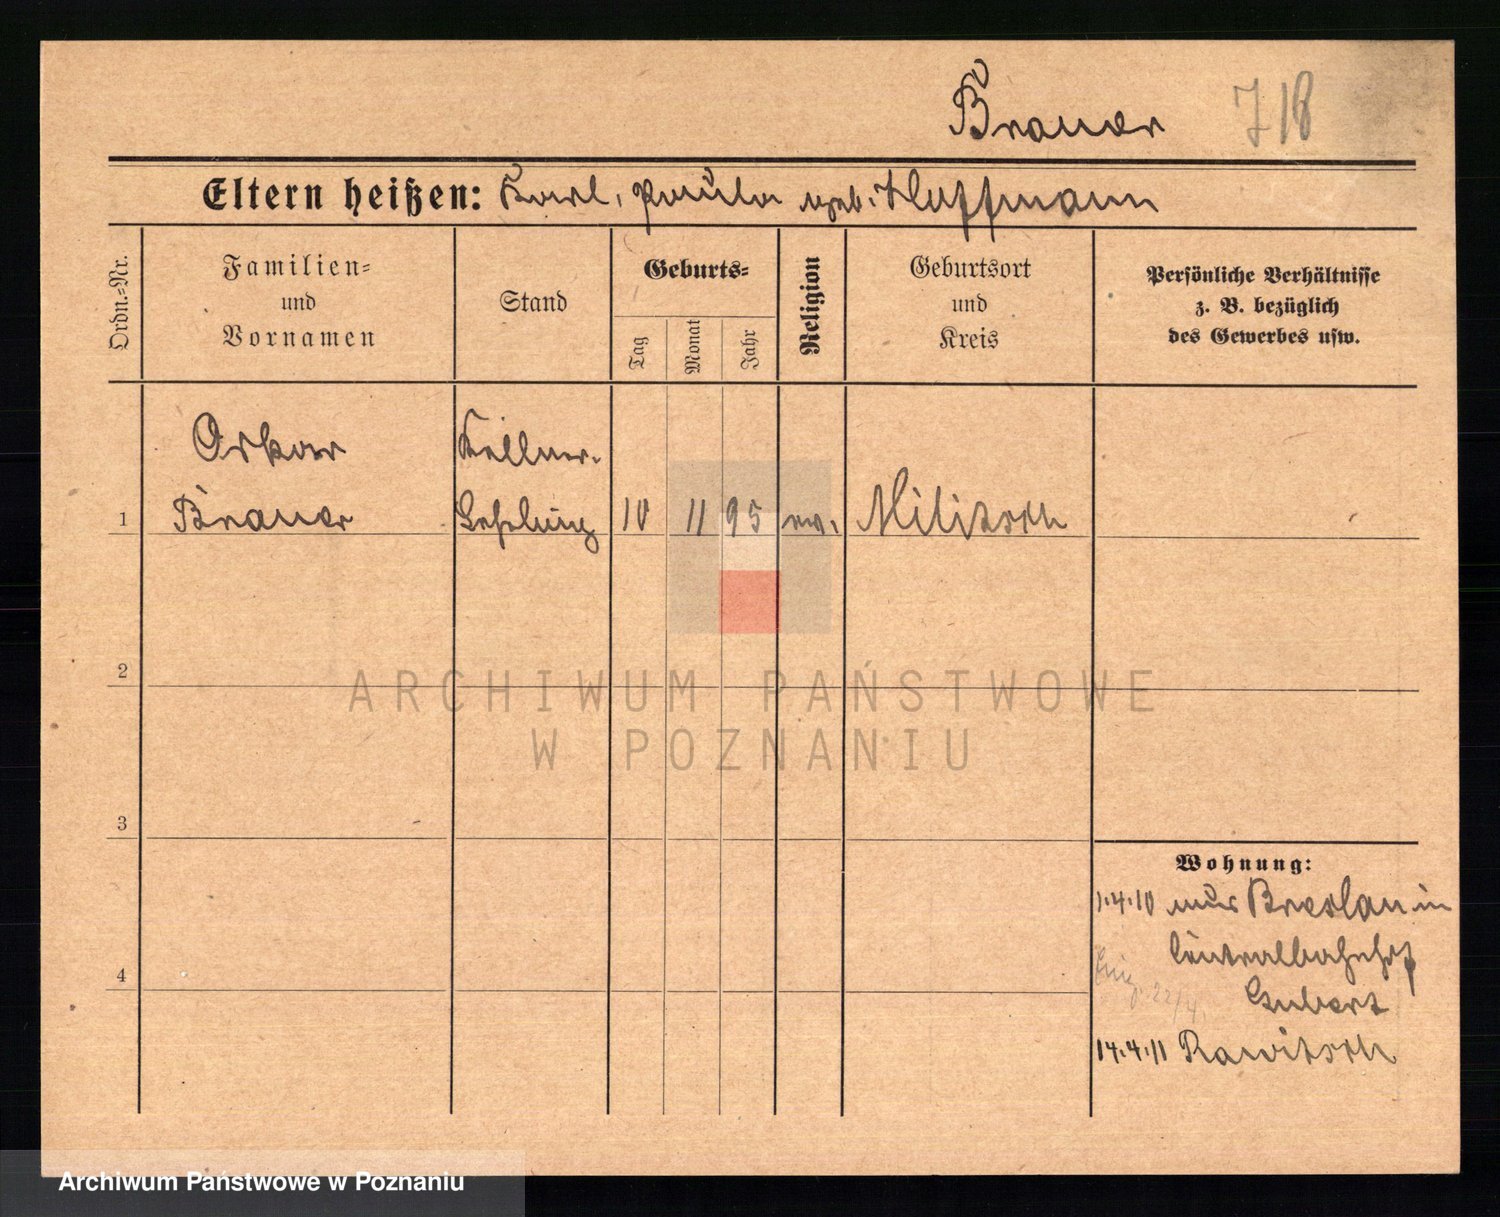 Brauer 718
Eltern heißen: Karl, Paula geb. Hoffmann
Ordn.=Nr.
Familien=
und
Vornamen
Stand
Geburts=
Tag
Monat
Jahr
Religion
Geburtsort
und
Kreis
Persönliche Verhältnisse
z. B. bezüglich
des Gewerbes usw.
Oskar Kellner-
1 Brauer 10 11 95 ev. Militsch
2
ARCHIWUM PAŃSTWOWE
W POZNANIU
3
Wohnung:
1.4.10 Breslau in
Centralbahnhof
4
22/4.
14.4.11 Rawitsch
Archiwum Państwowe w Poznaniu